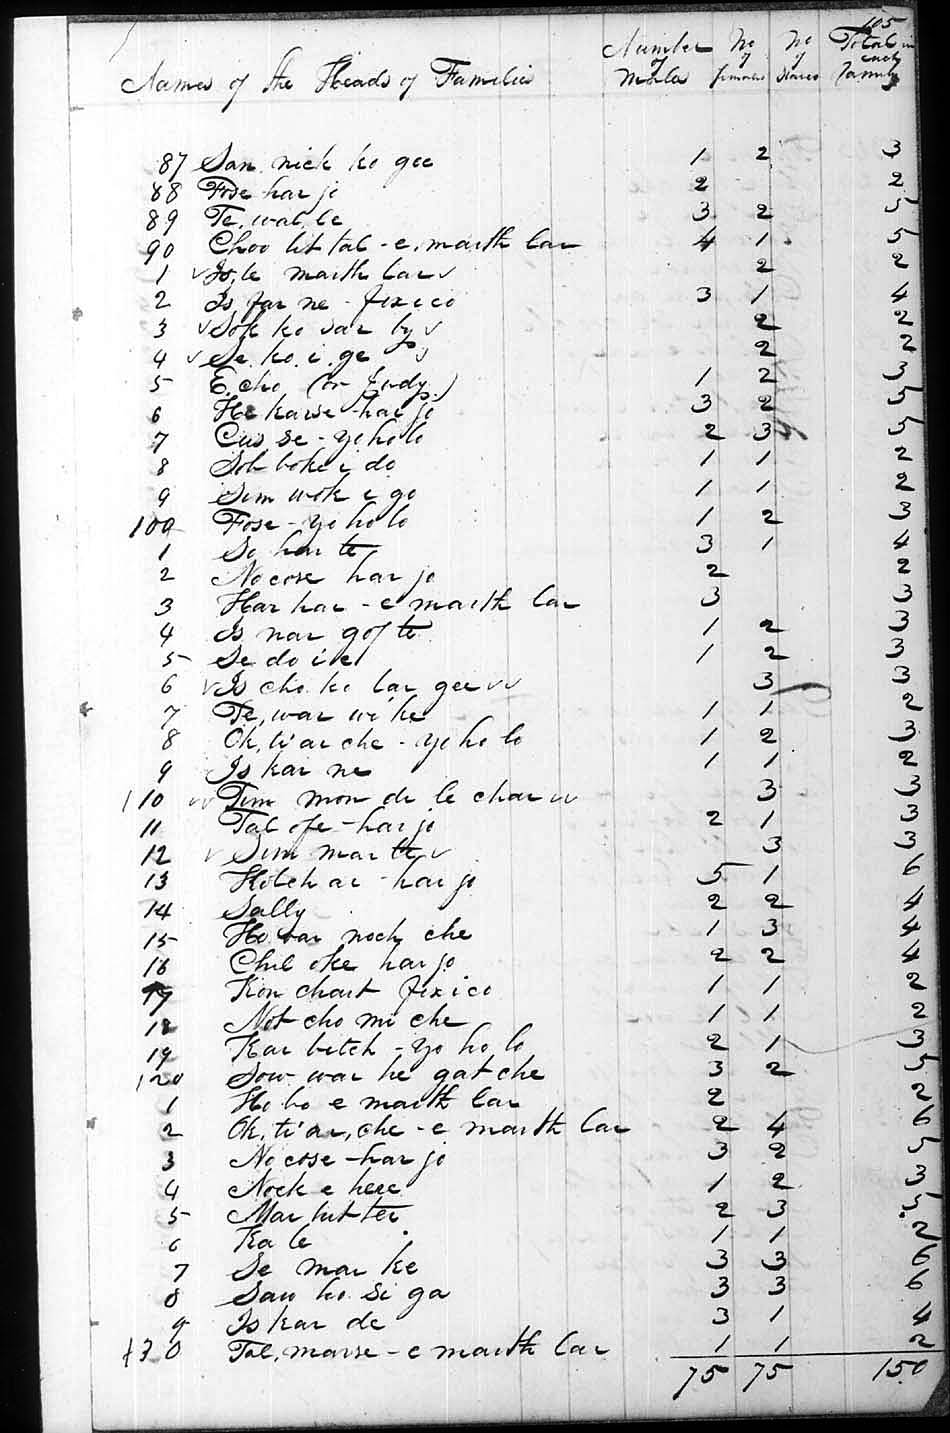 105
Names of the Heads of Families Number of Males No of females No of Slaves Total in each family
87 San nick ko gee 1 2 3
88 Fose har jo 2 2
89 Te, wal, le 3 2 5
90 Choo lit tal - e, marth lar 4 1 5
1 Is, le marth lar 2 2
2 Is far ne - fixico 3 1 4
3 Sok ko sar by 2 2
4 Se ko i ge 2 2
5 Echo (or Judy) 1 2 3
6 He karse - har jo 3 2 5
7 Cus se - yoholo 2 3 5
8 Sol boke i do 1 1 2
9 Sim wok e go 1 1 2
100 Fose - yo ho lo 1 2 3
1 So har te 3 1 4
2 No cose har jo 2 2
3 Har har - e marth lar 3 3
4 Is nar gof te 1 2 3
5 Se do i ke 1 2 3
6 Is cho ko lar gee 3 3
7 Te, war wi ke 1 1 2
8 Ok, ti ar che - yo ho lo 1 2 3
9 Is kar ne 1 1 2
110 Tim mon de le char 3 3
11 Tal ofe - har jo 2 1 3
12 Sim mar te 3 3
13 Hotch ar - har jo 5 1 6
14 Sally 2 2 4
15 Ho bar noch che 1 3 4
16 Chil oke har jo 2 2 4
17 Kon chart fixico 1 1 2
18 Not cho mi che 1 1 2
19 Kar bitch - yo ho lo 2 1 3
120 Sow war he gat che 3 2 5
1 Ho bo e marth lar 2 2
2 Ok, ti ar, che - e marth lar 2 4 6
3 No cose - har jo 3 2 5
4 Nock e here 1 2 3
5 Mar hut tee 2 3 5
6 Ka le 1 1 2
7 Se mar ke 3 3 6
8 Saw ho si ga 3 3 6
9 Is kar de 3 1 4
130 Tal, marse - e marth lar 1 1 2
75 75 150